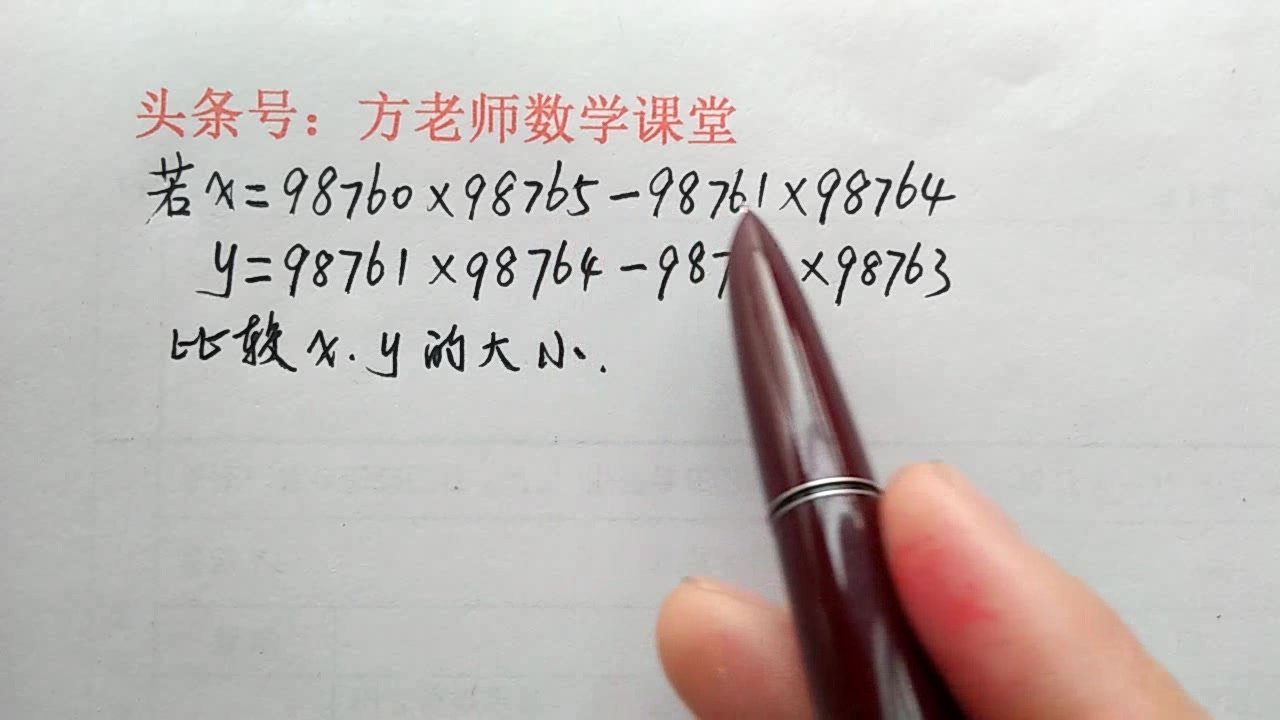 头条号：方老师数学课堂
若x=98760×98765-98761×98764
y=98761×98764-987 ×98763
比较x.y的大小.